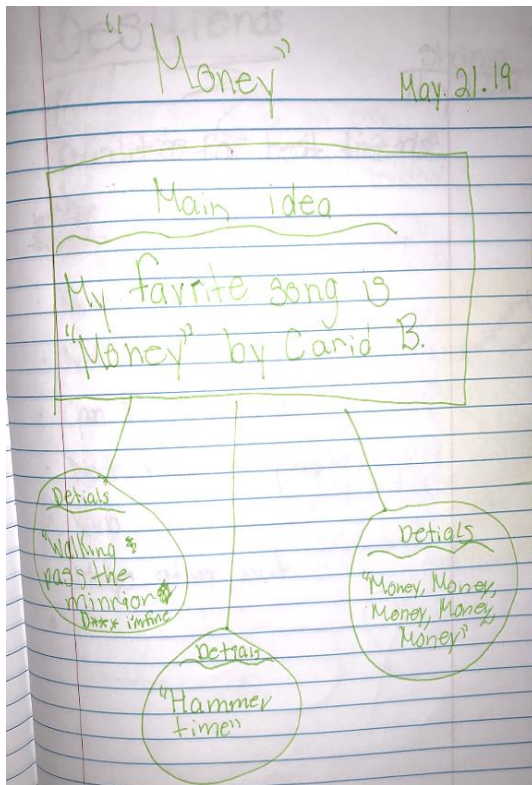 "Money"
May. 21.19
Main idea
My favrite song is
"Money" by Carid B.
Detials
"Walking
pass the
minnior
D*** i'm fine
Detials
"Hammer
time"
Detials
"Money, Money,
Money, Money,
Money"